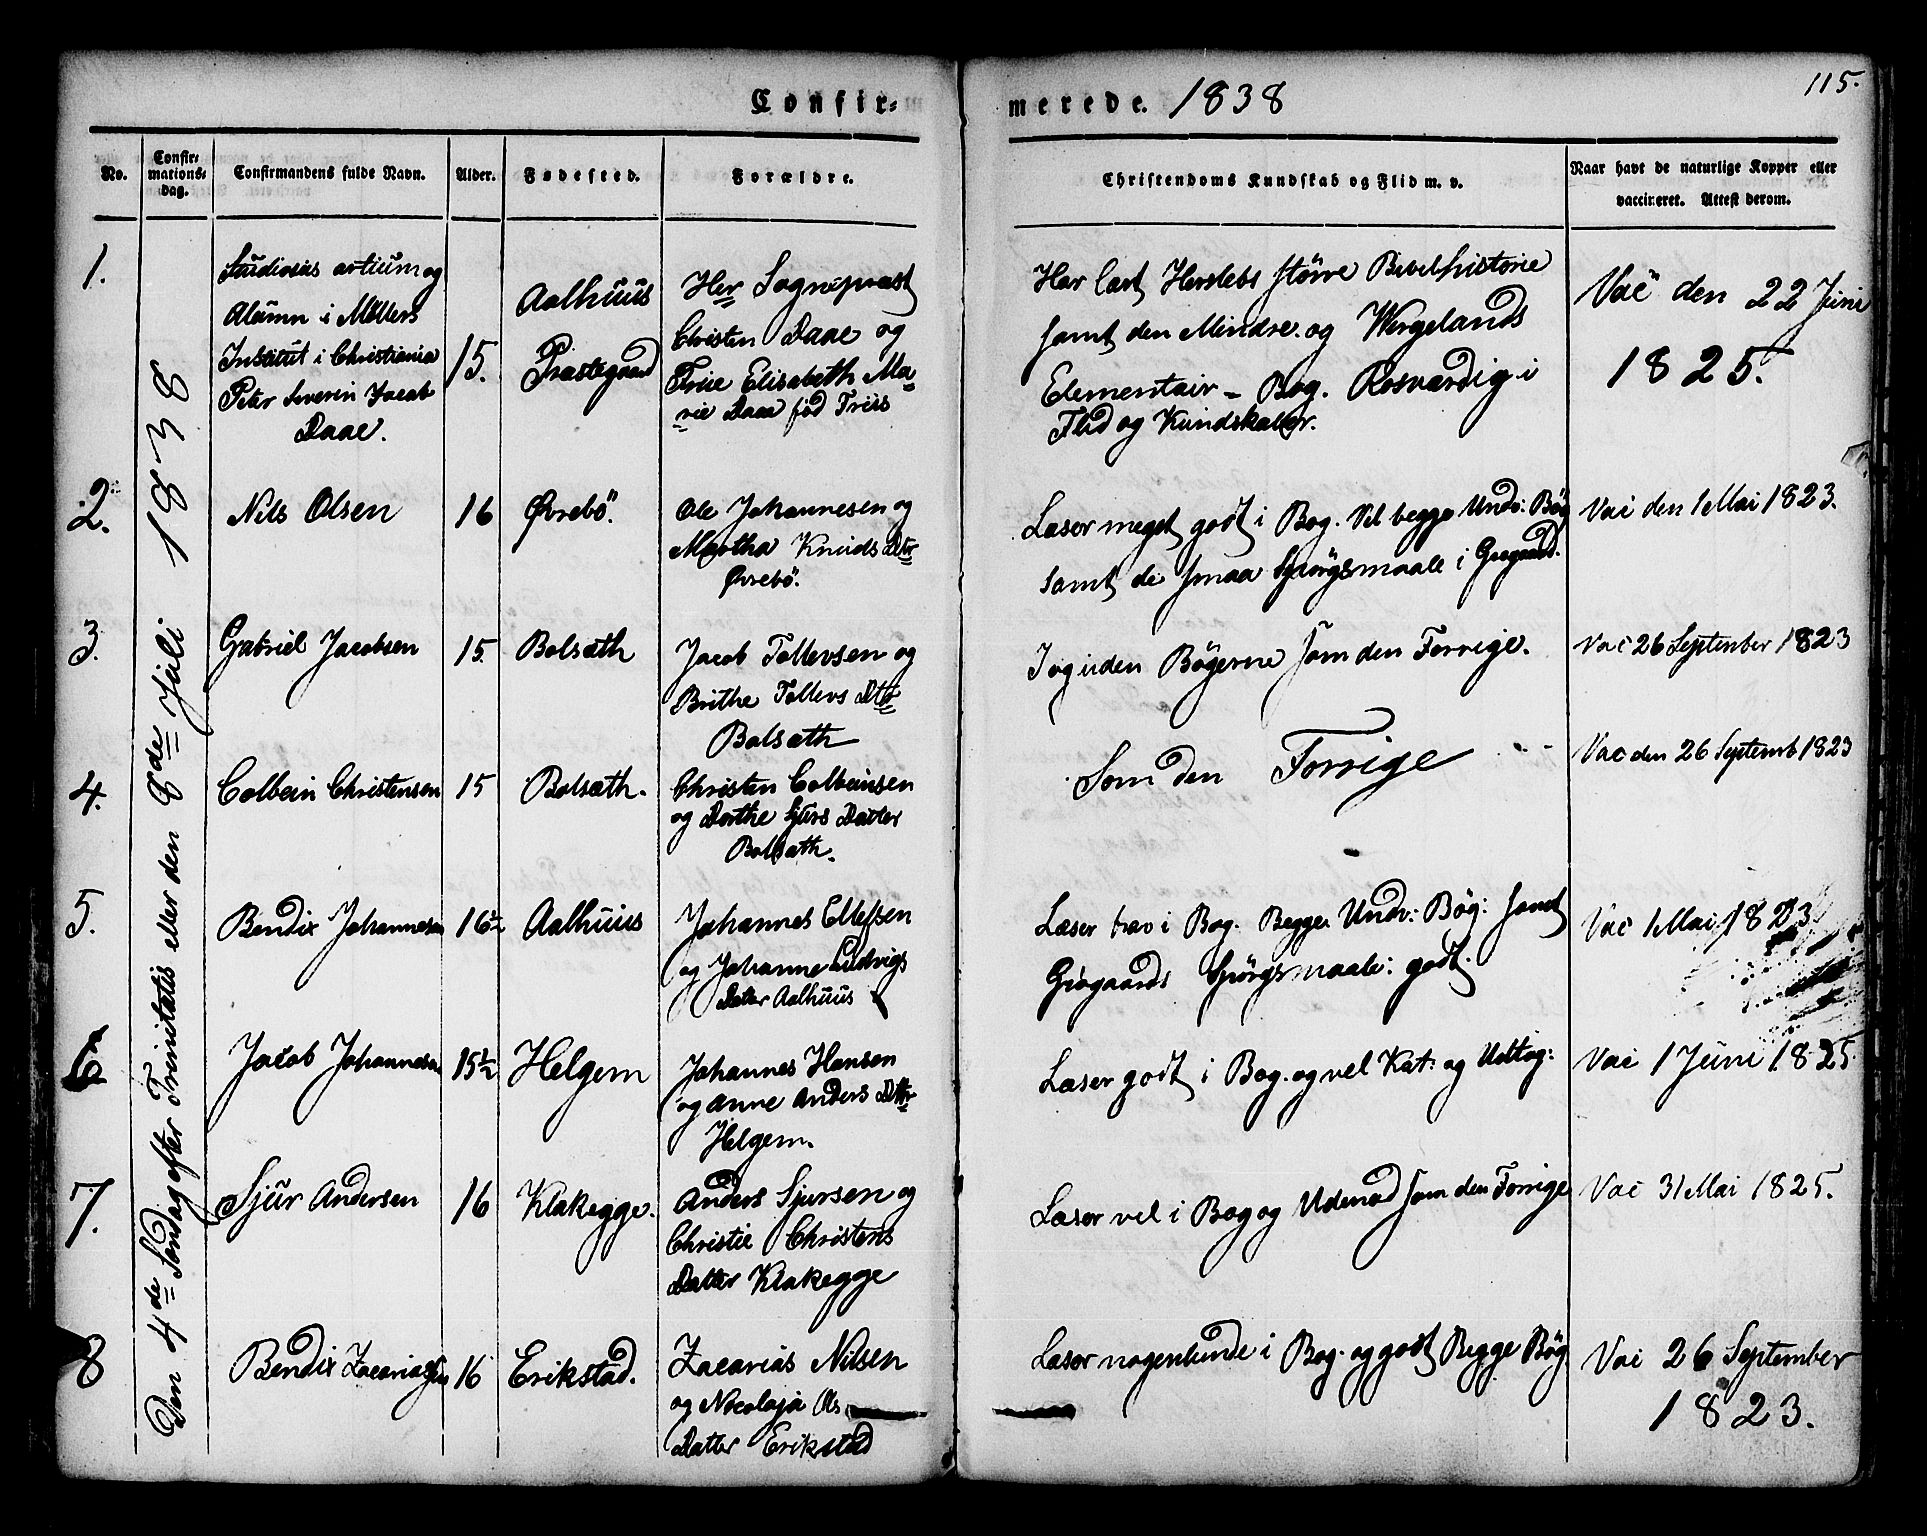 Confir=
merede. 1838
115.
No.
Confir=
mations=
dag.
Confirmandens fulde Navn.
Alder.
Fødested.
Forældre.
Christendoms Kundskab og Flid m. v.
Naar havt de naturlige Kopper eller
vaccineret. Attest derom.
Den 4de Søndag efter Trinitatis eller den 8de Juli 1838
1.
Studiosus artium og
Alumn i Møllers
Institut i Christiania
Peter Severin Jacob
Daae.
15.
Aalhuus
Præstegaard
Her Sognepræst
Christen Daae og
Frue Elisabeth Ma-
rie Daae fød Friis
Har læst Herslebs større Bibelhistorie
samt den Mindre. og Wergelands
Elementair - Bog. Rosværdig i
Flid og Kundskaber.
Vac den 22 Juni
1825.
2.
Nils Olsen
16
Øvrebö.
Ole Johannesen og
Martha Knuds Dttr
Øvrebö.
Læser meget godt i Bog. Vel begge Undv: Bög
samt de smaa Spörgsmaale i Grogaard.
Vac den 1 Mai 1823.
3.
Gabriel Jacobsen
15.
Bolsæth
Jacob Tollevsen og
Brithe Tollevs Dttr
Bolsæth
I og uden Bögerne som den Forrige.
Vac 26 September 1823
4.
Colbein Christensen
15
Bolsæth.
Christen Colbeinsen
og Dorthe Sjurs Datter
Bolsæth.
Som den Forrige
Vac den 26 Septemb 1823
5.
Bendix Johannesen
16½
Aalhuus
Johannes Ellefsen
og Johanne Ludvigs
Datter Aalhuus
Læser brav i Bog. Begge Undv: Bög: samt
Grogaards Spörgsmaale: godt.
Vac 1 Mai 1823
6
Jacob Johannesen
15½
Helgem
Johannes Hansen
og Anne Anders Dttr
Helgem.
Læser godt i Bog. og vel Kat: og Udtog:
Vac 1 Juni 1825.
7.
Sjur Andersen
16
Klakegge.
Anders Sjursen og
Christie Christens
Datter Klakegge
Læser vel i Bog og Udenad som den Forrige
Vac 31 Mai 1825.
8
Bendix Zacariassen
16
Erikstad.
Zacarias Nilsen
og Nicolaja Ols
Datter Erikstad
Læser nogenlunde i Bog. og godt Begge Bög
Vac 26 September
1823.